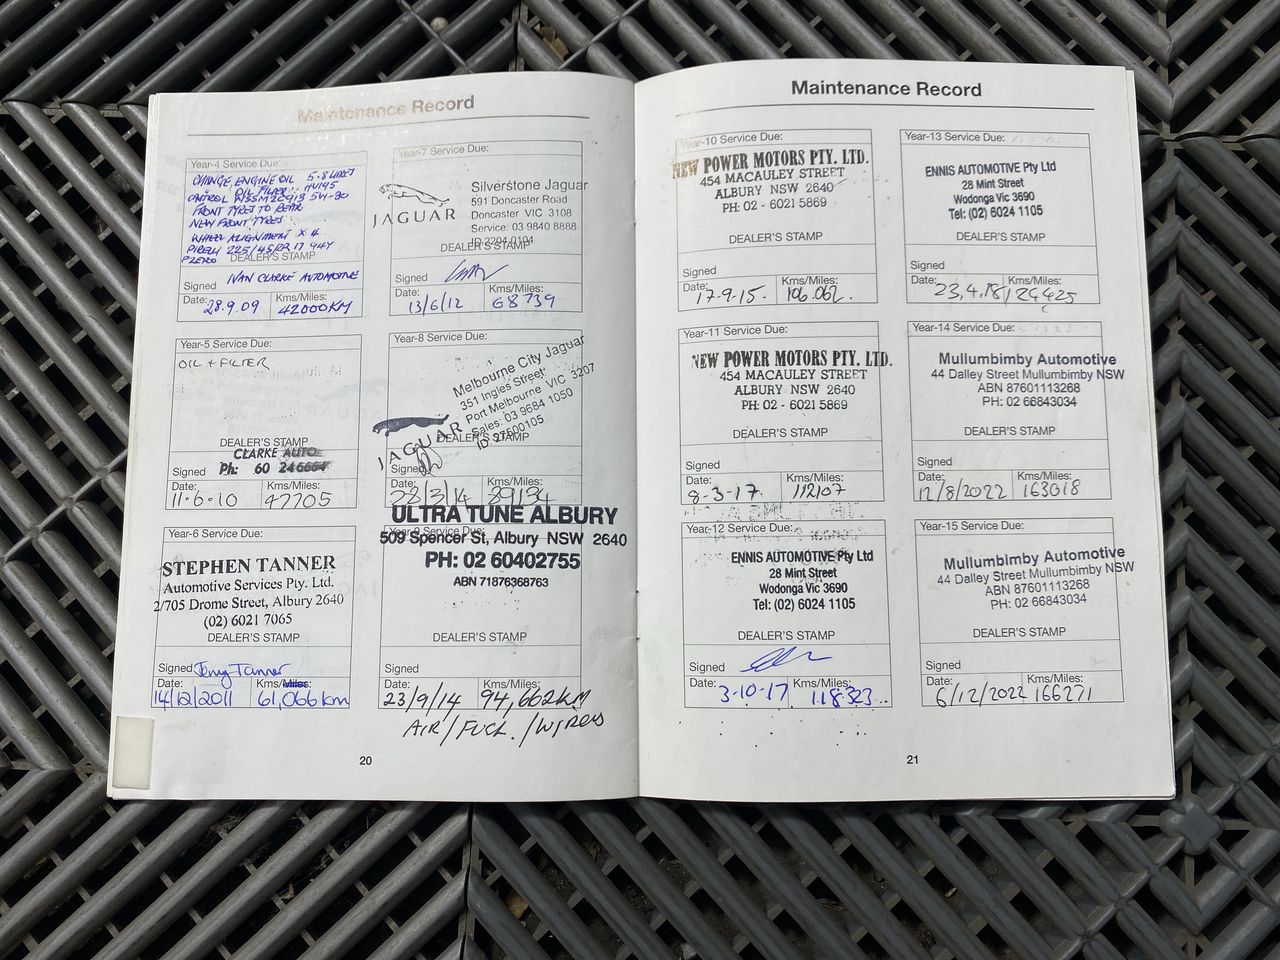 Maintenance Record
Year-4 Service Due:
CHANGE ENGINE OIL 5.8 LITRES
OIL FILTER
CASTROL WSSM2C913 5W-30
FRONT TYRES TO REAR
NEW FRONT TYRES
WHEEL ALIGNMENT X 4
PIRELLI 225/45ZR 17 94Y
PZERO
DEALER'S STAMP
Signed IVAN CLARKE AUTOMOTIVE
Date: 28.9.09 Kms/Miles: 42000KM
Year-5 Service Due:
OIL + FILTER
DEALER'S STAMP
CLARKE AUTO
Signed Ph: 60 246664
Date: 11-6-10 Kms/Miles: 47705
Year-6 Service Due:
STEPHEN TANNER
Automotive Services Pty. Ltd.
2/705 Drome Street, Albury 2640
(02) 6021 7065
DEALER'S STAMP
Signed Tony Tanner
Date: 14/12/2011 Kms/Miles: 61,066 km
Year-7 Service Due:
JAGUAR
Silverstone Jaguar
591 Doncaster Road
Doncaster VIC 3108
Service: 03 9840 8888
DEALER'S STAMP
Signed
Date: 13/6/12 Kms/Miles: 68739
Year-8 Service Due:
JAGUAR
Melbourne City Jaguar
351 Ingles Street
Port Melbourne VIC 3207
Sales: 03 9684 1050
ID: 27500105
DEALER'S STAMP
Signed
Date: 28/3/14 Kms/Miles: 89134
Year-9 Service Due:
ULTRA TUNE ALBURY
509 Spencer St, Albury NSW 2640
PH: 02 60402755
ABN 71876368763
DEALER'S STAMP
Signed
Date: 23/9/14 Kms/Miles: 94,662KM
AIR/FUEL./WIPERS
20
Maintenance Record
Year-10 Service Due:
NEW POWER MOTORS PTY. LTD.
454 MACAULEY STREET
ALBURY NSW 2640
PH: 02 - 6021 5869
DEALER'S STAMP
Signed
Date: 17-9-15. Kms/Miles: 106.062.
Year-11 Service Due:
NEW POWER MOTORS PTY. LTD.
454 MACAULEY STREET
ALBURY NSW 2640
PH: 02 - 6021 5869
DEALER'S STAMP
Signed
Date: 8-3-17. Kms/Miles: 112107
Year-12 Service Due:
ENNIS AUTOMOTIVE Pty Ltd
28 Mint Street
Wodonga Vic 3690
Tel: (02) 6024 1105
DEALER'S STAMP
Signed
Date: 3-10-17 Kms/Miles: 118323
Year-13 Service Due:
ENNIS AUTOMOTIVE Pty Ltd
28 Mint Street
Wodonga Vic 3690
Tel: (02) 6024 1105
DEALER'S STAMP
Signed
Date: 23,4,18 Kms/Miles: 124425
Year-14 Service Due:
Mullumbimby Automotive
44 Dalley Street Mullumbimby NSW
ABN 87601113268
PH: 02 66843034
DEALER'S STAMP
Signed
Date: 12/8/2022 Kms/Miles: 163018
Year-15 Service Due:
Mullumbimby Automotive
44 Dalley Street Mullumbimby NSW
ABN 87601113268
PH: 02 66843034
DEALER'S STAMP
Signed
Date: 6/12/2022 Kms/Miles: 166271
21